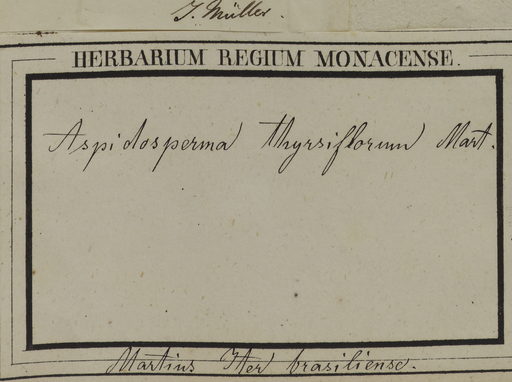 J. Müller.
HERBARIUM REGIUM MONACENSE.
Aspidosperma thyrsiflorum Mart.
Martius Iter brasiliense.